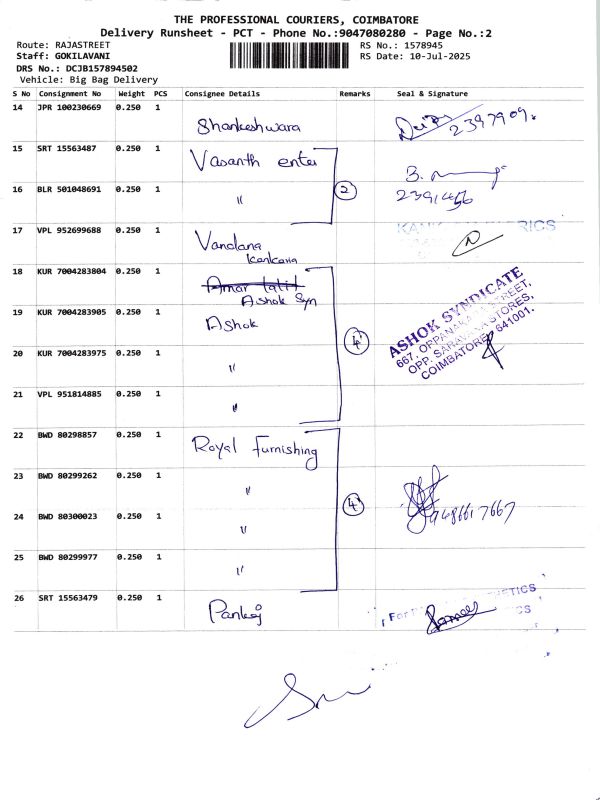 THE PROFESSIONAL COURIERS, COIMBATORE
Delivery Runsheet - PCT - Phone No.:9047080280 - Page No.:2
Route: RAJASTREET
Staff: GOKILAVANI
DRS No.: DCJB157894502
Vehicle: Big Bag Delivery
RS No.: 1578945
RS Date: 10-Jul-2025
S No Consignment No Weight PCS Consignee Details Remarks Seal & Signature
14 JPR 100230669 0.250 1 Shankeshwara 2397909.
15 SRT 15563487 0.250 1 Vasanth enter B.
16 BLR 501048691 0.250 1 〃 2 2391456
17 VPL 952699688 0.250 1 Vandana Kankaria
18 KUR 7004283804 0.250 1 Ashok Syn
19 KUR 7004283905 0.250 1 Ashok 4
20 KUR 7004283975 0.250 1 〃
21 VPL 951814885 0.250 1 〃
ASHOK SYNDICATE
667, OPPANAKARA STREET,
OPP. SARAVANA STORES,
COIMBATORE - 641001.
22 BWD 80298857 0.250 1 Royal Furnishing
23 BWD 80299262 0.250 1 〃
24 BWD 80300023 0.250 1 〃 4 9486617667
25 BWD 80299977 0.250 1 〃
26 SRT 15563479 0.250 1 Pankaj For